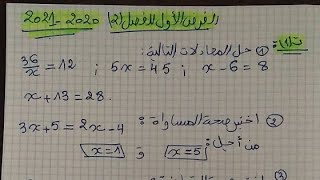 الفرض الأول للفصل (2) 2020-2021
ت(1): ① حل المعادلات التالية:
36/x = 12 ; 5x = 45 ; x - 6 = 8
x + 13 = 28.
② اختبر صحة المساواة: 3x + 5 = 2x - 4
من أجل: x = 5 و x = 1